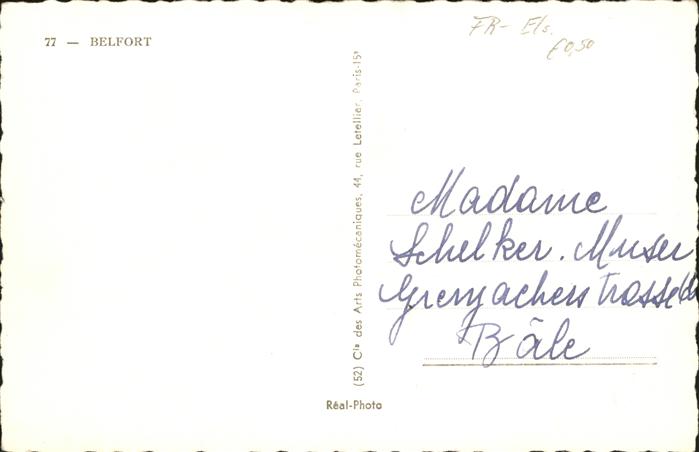 77 — BELFORT
FR- Els.
€0,50
(52) Cie des Arts Photomécaniques, 44, rue Letellier, Paris-15e
Madame
Schelker. Muser
Grenzacherstrasse
Bâle
Réal-Photo